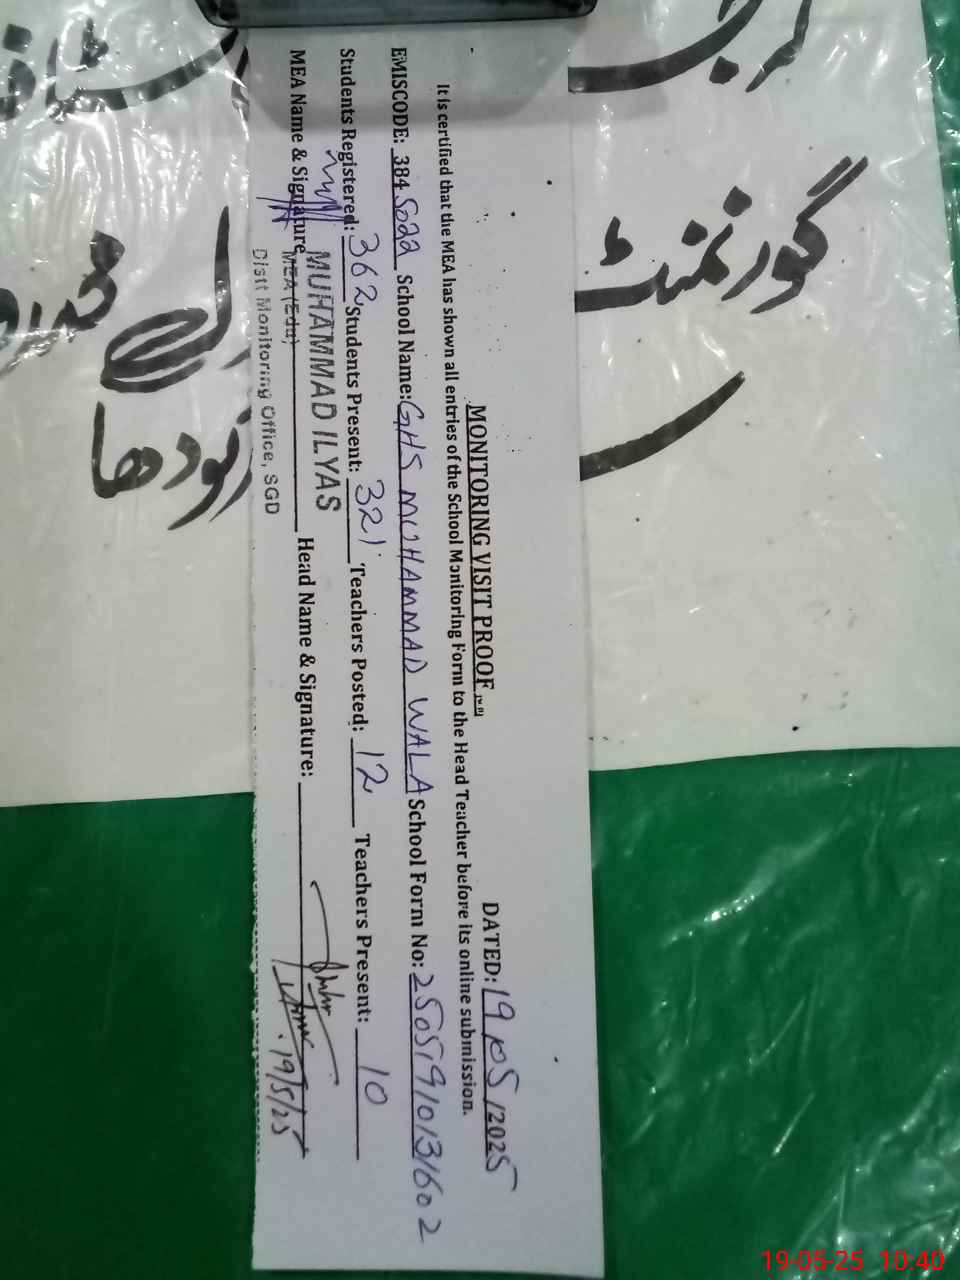 MONITORING VISIT PROOF
DATED: 19/05/2025
It is certified that the MEA has shown all entries of the School Monitoring Form to the Head Teacher before its online submission.
EMISCODE: 3845022 School Name: GHS MUHAMMAD WALA School Form No: 2505191013602
Students Registered: 362 Students Present: 321 Teachers Posted: 12 Teachers Present: 10
MEA Name & Signature Head Name & Signature:
MUHAMMAD ILYAS
MEA (Edu)
Distt Monitoring Office, SGD
19/5/25
گورنمنٹ
19-05-25 10:40